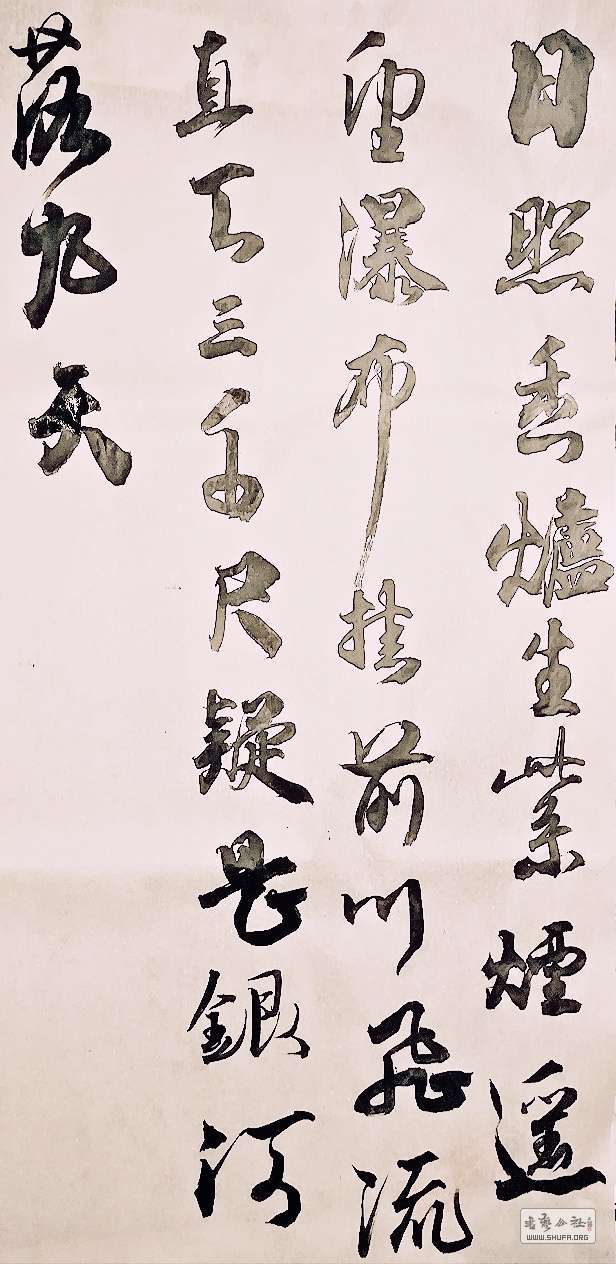 日照香爐生紫煙遥
望瀑布挂前川飛流
直下三千尺疑是銀河
落九天
書藝公社
WWW.SHUFA.ORG